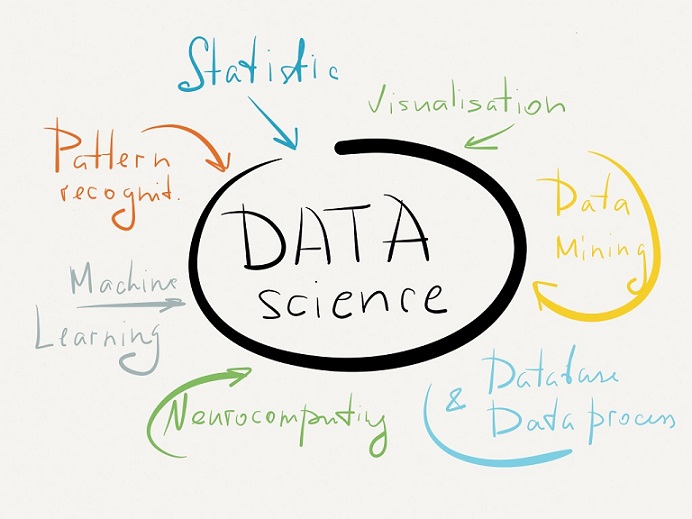 Statistic
Visualisation
Pattern
recognit.
Data
Mining
DATA
science
Machine
Learning
Neurocomputing
& Database
Data process